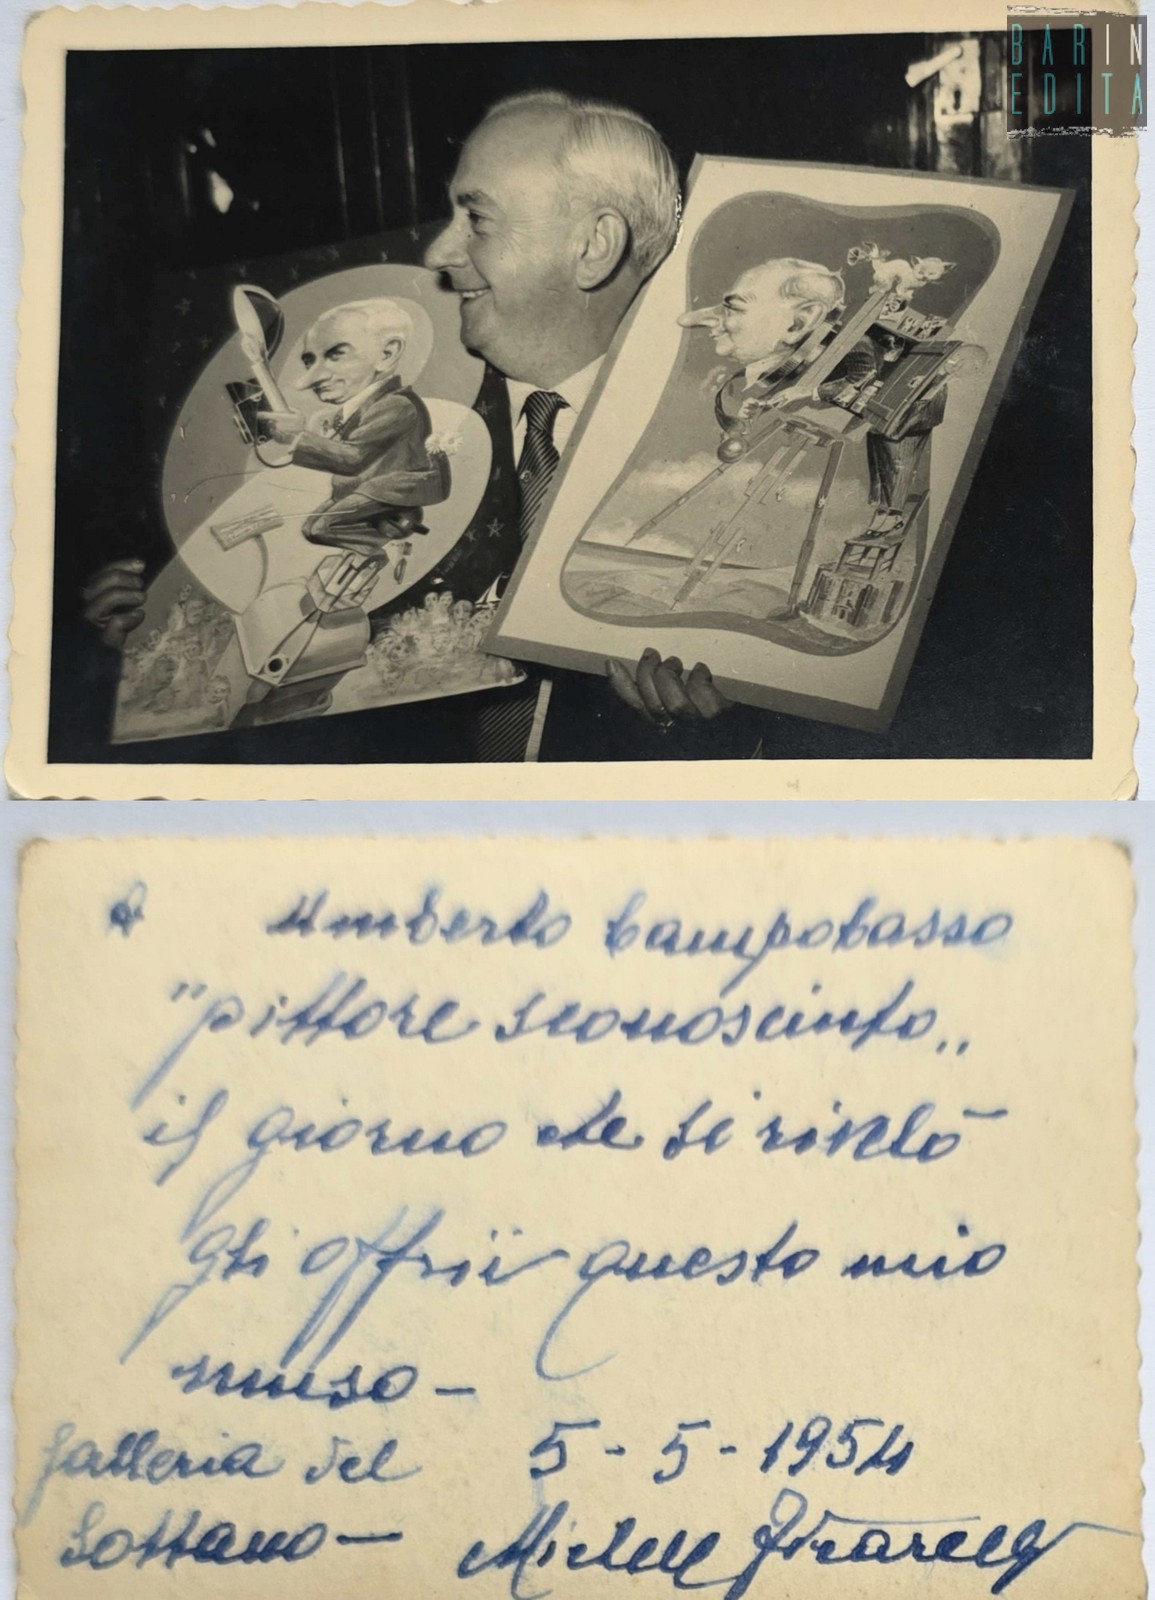 BARIN
EDITA
a Umberto Campobasso
"pittore sconosciuto„
il giorno che si rivelò
gli offrii questo mio
muso -
Galleria del 5 - 5 - 1954
Sottano - Michele